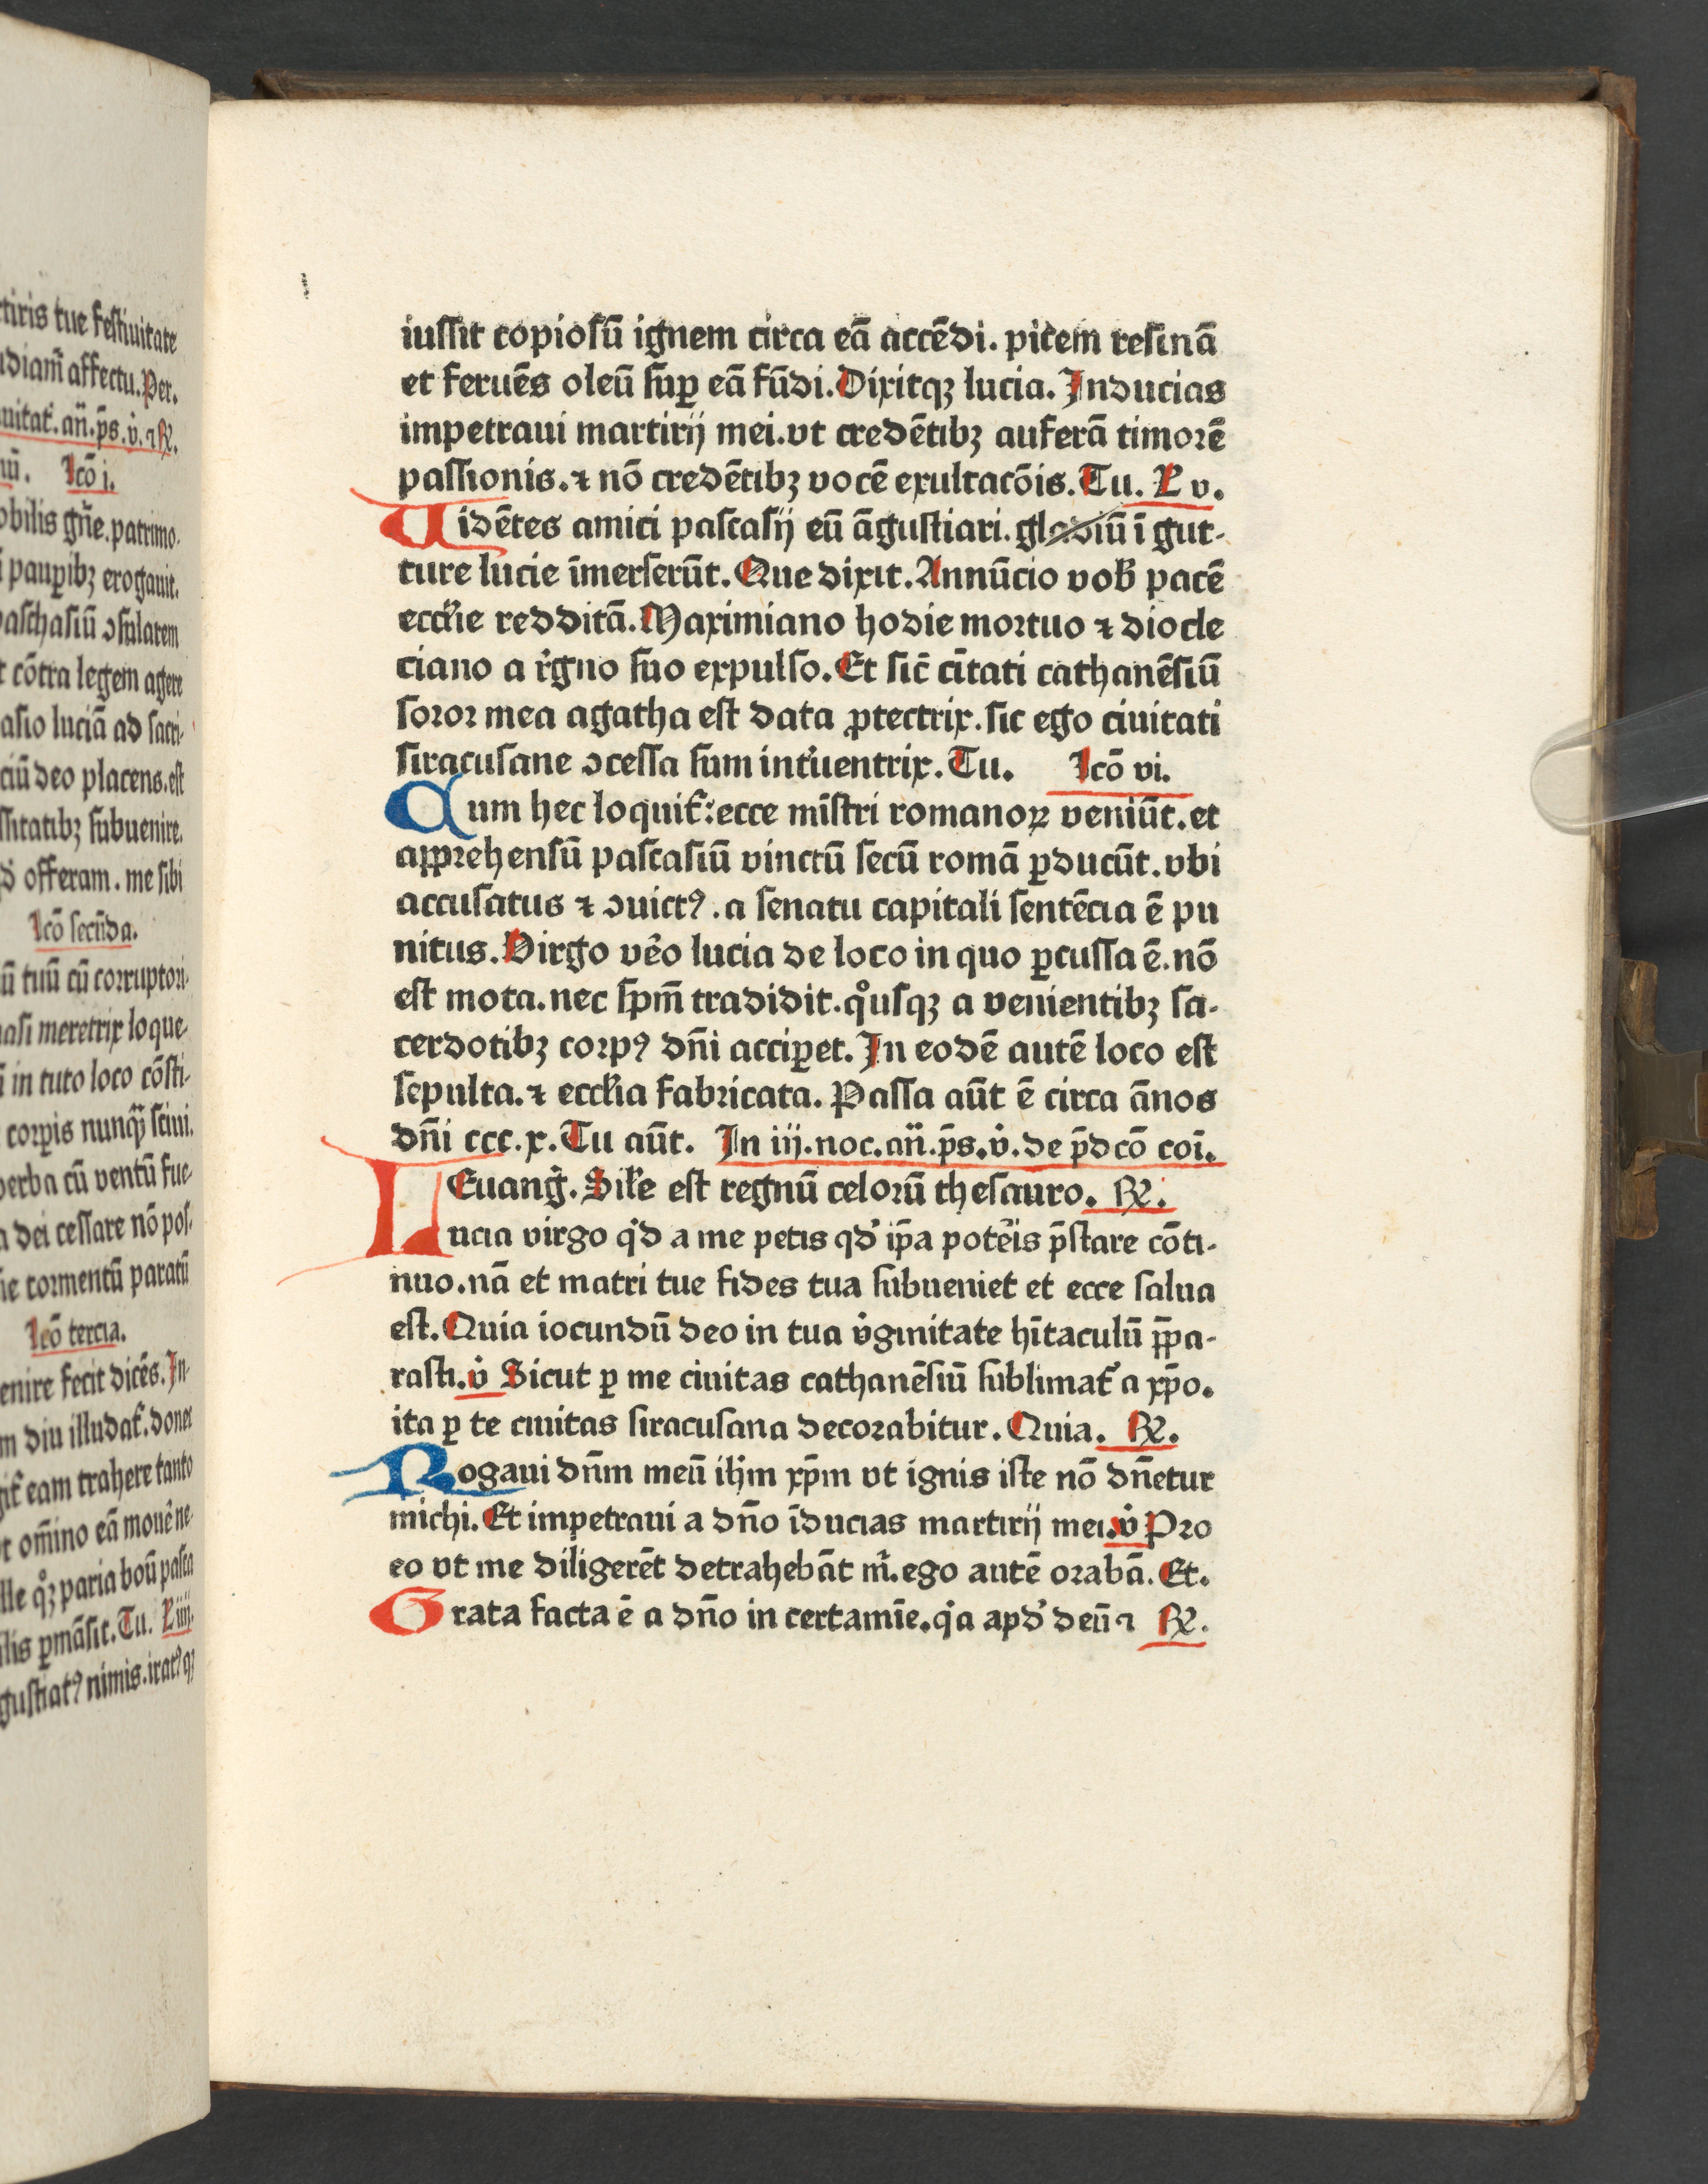 tiris tue festiuitate
diam̄ affectu. Per.
uitat̛. an̄. p̄s. v̛. ⁊ ℟.
Icō i.
obilis gn̄e. patrimo-
paup̲ibꝫ erogauit.
paschasiū ↄsularem
cōtra legem agere
asio luciā ad sacri-
ciū deo placens. est
ssitatibꝫ subuenire.
offeram. me sibi
Icō secūda.
ū tuū cū corruptori-
asi meretrix loque-
in tuto loco cōsti-
corp̲is nunqꝫ sciui.
verba cū ventū fue-
a dei cessare nō pos-
tormentū paratū
Icō tercia.
enire fecit dicēs. In-
m diu illudat̛. donec
it̛ eam trahere tanto
om̄ino eā mouē ne-
lle qͦꝫ paria boū pasca
ilis p̲māsit. Tu. L iiij.
gustiatꝰ nimis. iratꝰ qꝫ
iussit copiosū ignem circa eā accēdi. picem resinā
et feruēs oleū sup̲ eā fūdi. Dixitqꝫ lucia. Inducias
impetraui martirij mei. vt credētibꝫ auferā timorē
passionis. ⁊ nō credētibꝫ vocē exultacōis. Tu. L v.
Uidētes amici pascasij eū āgustiari. gladiū ī gut-
ture lucie īmerserūt. Que dixit. Annūcio vob̛ pacē
eccl̛ie redditā. Maximiano hodie mortuo ⁊ diocle
ciano a r̛gno suo expulso. Et sic̄ cītati cathanēsiū
soror mea agatha est data ꝓtectrix. sic ego ciuitati
siracusane ↄcessa sum int̛uentrix. Tu. Icō vi.
Cum hec loquit̛: ecce mīstri romanoꝝ veniūt. et
apprehensū pascasiū vinctū secū romā p̲ducūt. vbi
accusatus ⁊ ↄuictꝰ. a senatu capitali sentēcia ē pu
nitus. Virgo vēo lucia de loco in quo p̲cussa ē. nō
est mota. nec sp̄m tradidit. qͦusqꝫ a venientibꝫ sa-
cerdotibꝫ corpꝰ dn̄i accip̲et. In eodē autē loco est
sepulta. ⁊ eccl̛ia fabricata. Passa aūt ē circa ānos
dn̄i ccc. x. Tu aūt. In iij. noc. an̄. p̄s. v̛. de p̄dcō coī.
Euang̛. Sil̛e est regnū celorū thesauro. ℟.
Lucia virgo qͥd a me petis qd̛ ip̄a potēis p̄stare cōti-
nuo. nā et matri tue fides tua subueniet et ecce salua
est. Quia iocundū deo in tua v̛ginitate hītaculū p̄pa-
rasti. v̛ Sicut p̲ me ciuitas cathanēsiū sublimat̛ a xp̄o.
ita p̲ te ciuitas siracusana decorabitur. Quia. ℟.
Rogaui dn̄m meū ih̄m xp̄m vt ignis iste nō dn̄etur
michi. Et impetraui a dn̄o īducias martirij mei. v̛ Pro
eo vt me diligerēt detrahebāt m̛. ego autē orabā. Et.
Grata facta ē a dn̄o in certamīe. qͥa apd̛ deū ⁊ ℟.